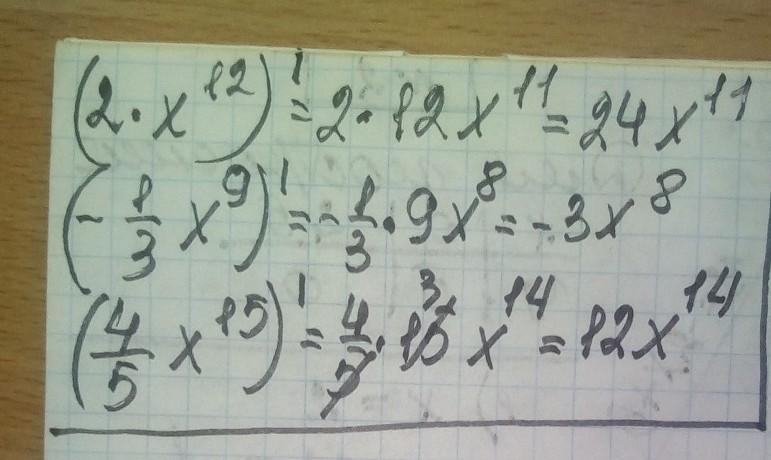 (2·x¹²)' = 2·12x¹¹ = 24x¹¹
(-1/3 x⁹)' = -1/3·9x⁸ = -3x⁸
(4/5 x¹⁵)' = 4/5·15³x¹⁴ = 12x¹⁴